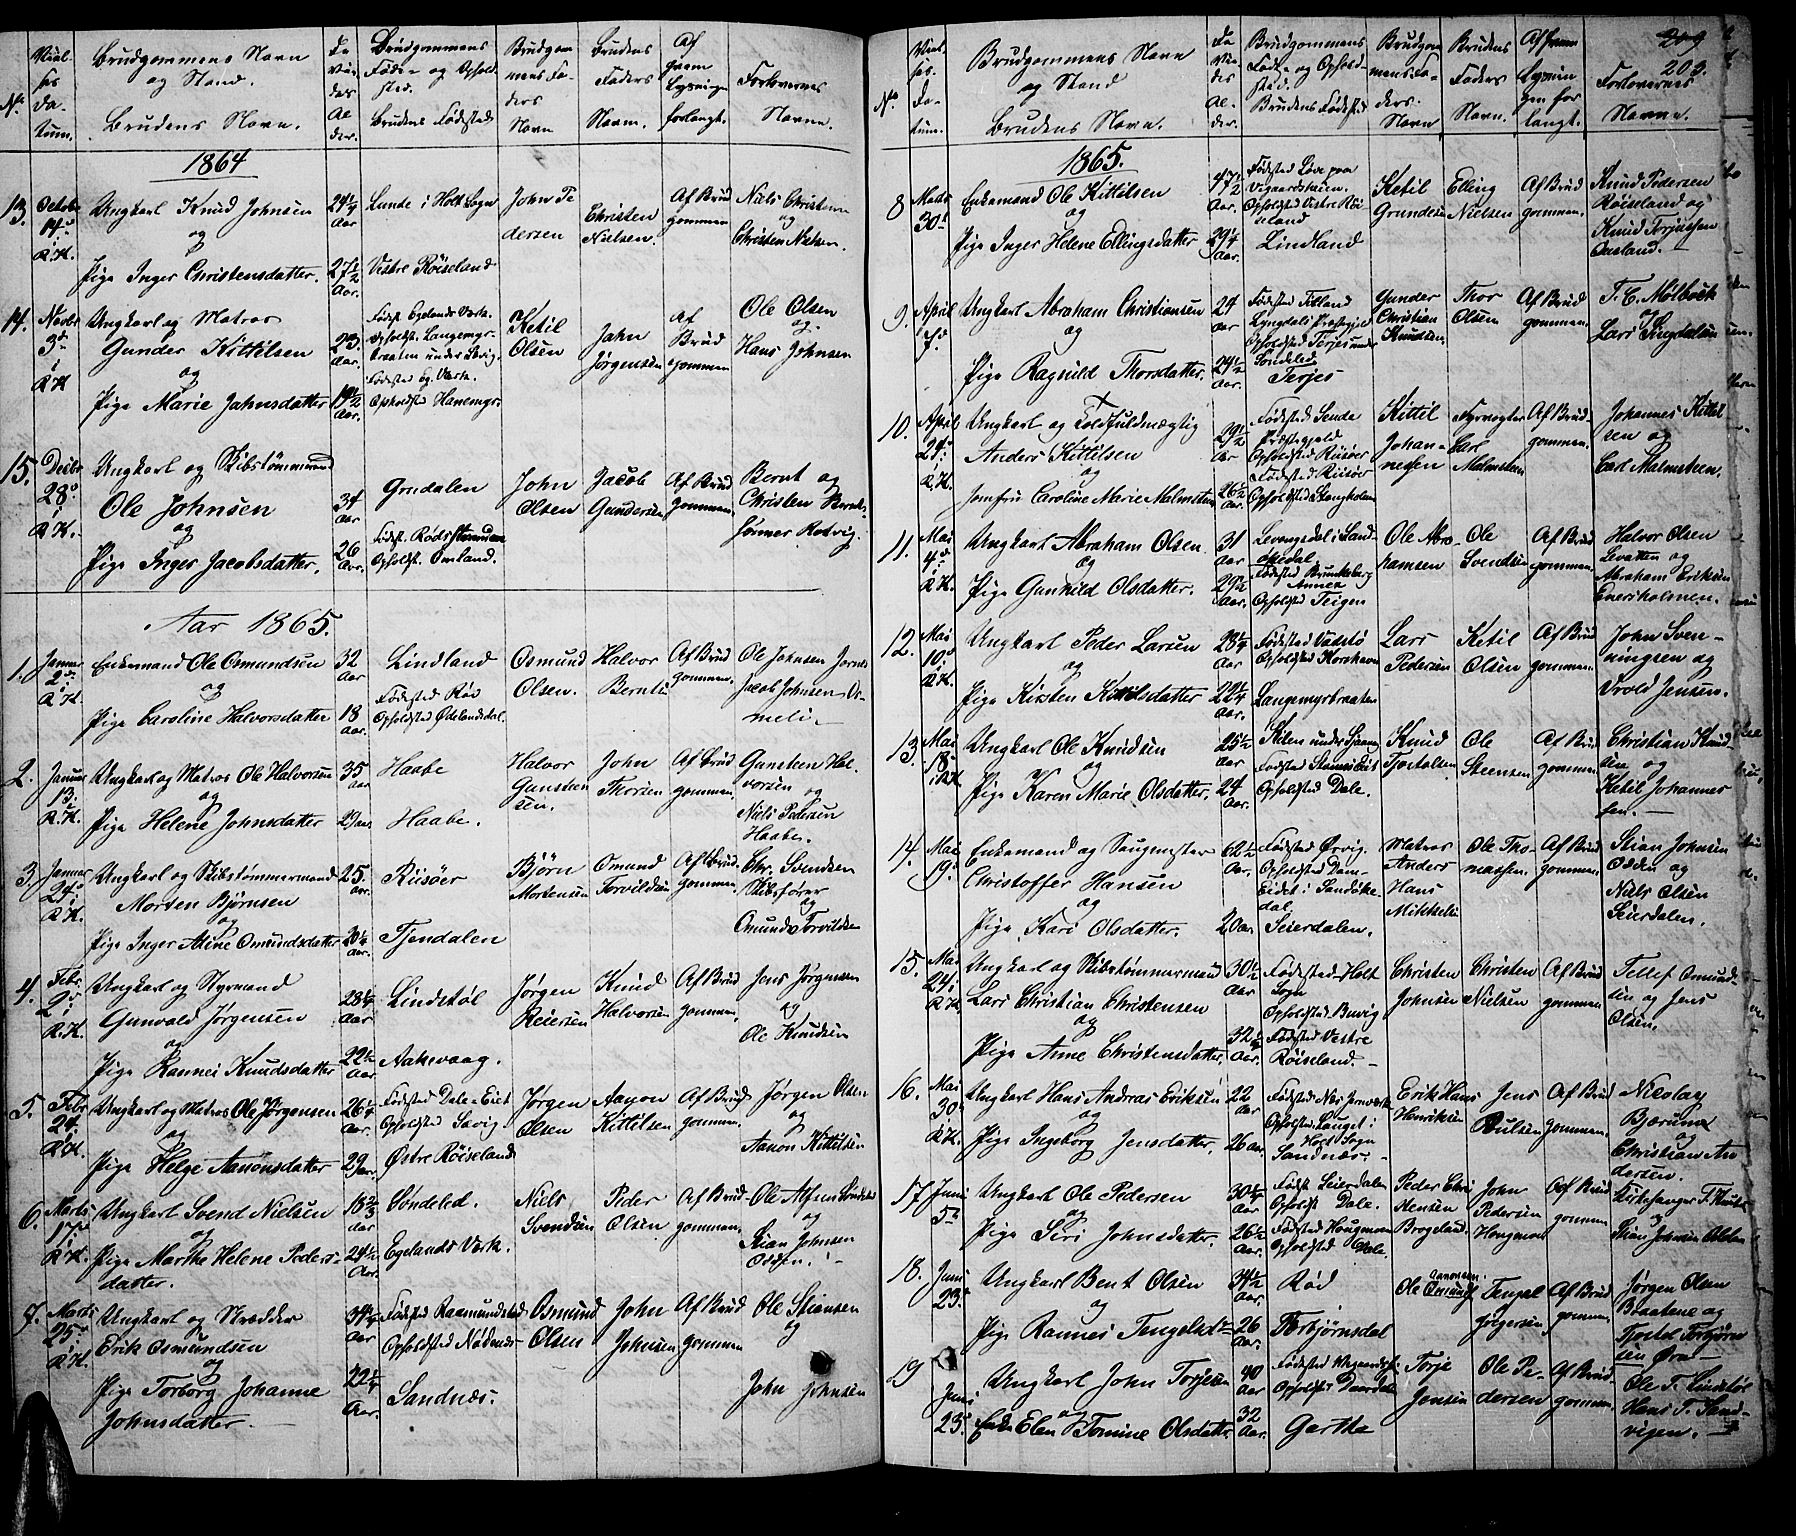 No.
Viel-
ses
Da-
tum.
Brudgommens Navn
og Stand.
Brudens Navn.
Brudgommens
Føde- og Ophold-
sted.
Brudens Fødested
Brudgom
mens Fa-
ders
Navn
Brudens
Faders
Navn.
Af
hvem
Lysningen
forlangt.
Forlovernes
Navne.
1864
13. Octobr 14de i R.K.
Ungkarl Knud Johnsen
og
Pige Inger Christensdatter.
24 1/4 Aar
27 1/2 Aar.
Lunde i Holt Sogn
Vestre Röiseland
John Pe
dersen
Christen
Nielsen.
Af Brud
gommen
Niels Christensen
og
Christen Nielsen.
14. Novbr 3de i R.K
Ungkarl og Matros
Gunder Kittilsen
og
Pige Marie Jahnsdatter
23 Aar.
19 1/2 Aar.
Födest. Egelands Værk.
Opholdst. Langemyr-
braaten under Savig.
Födested Eg. Værk.
Opholdsted Hanemyr.
Ketil
Olsen
Jahn
Jørgensen
Af
Brud
gommen
Ole Olsen
og
Hans Johnsen
15. Decbr 28de i R.K.
Ungkarl og Skibstømmermand
Ole Johnsen
og
Pige Inger Jacobsdatter.
34 Aar
26 Aar.
Grudalen
Opholdst. Omland.
John
Olsen
Jacob
Gundersen
Af Brud
gommen
Bernt og
Christen Bernt-
sønner Rotvig.
Aar 1865.
1. Januar 2de i R.K
Enkemand Ole Osmundsen
og
Pige Caroline Halvorsdatter
32 Aar
18 Aar.
Lindland
Födested Röd
Opholdsted Ødelandsdal.
Osmund
Olsen.
Halvor
Berntsen
Af Brud
gommen.
Ole Johnsen
Jacob Johnsen
2. Januar 13. i R.K.
Ungkarl og Matros Ole Halvorsen
og
Pige Helene Johnsdatter
35 Aar
29 Aar.
Haabe
Haabe.
Halvor
Gunsten
sen.
John
Thorsen
Af Brud
gommen.
Gunsten Hal-
vorsen og
Niels Pedersen
Haabe.
3. Januar 24de i R.K.
Ungkarl og Skibstømmermand
Morten Bjørnsen
og
Pige Inger Adine Omundsdatter
25 Aar.
20 1/4 Aar.
Riisöer
Tjendalen
Bjørn
Mortensen
Omund
Torvildsen
Af Brud-
gommen.
Chr. Svendsen
Skibsfører
og
Omund Torvildsen
4. Febr. 2de i R.K.
Ungkarl og Styrmand
Gunvald Jørgensen
og
Pige Rannei Knudsdatter
28 1/4 Aar
22 1/2 Aar.
Lindstøl
Aakevaag.
Jørgen
Reiersen
Knud
Halvorsen
Af Brud
gommen.
Jens Jørgensen
og
Ole Knudsen
5. Febr 24. i R.K
Ungkarl og Matros Ole Jørgensen
og
Pige Helge Aanonsdatter
26 1/4 Aar.
29 Aar.
Födested Dale i Eid
Opholdsted Savig.
Østre Röiseland
Jørgen
Olsen
Aanon
Kittilsen
Af Brud
gommen.
Jørgen Olsen
og
Aanon Kittilsen
6. Marts 17de i R.K.
Ungkarl Svend Nielsen
og
Pige Marthe Helene Peders-
datter.
18 2/3 Aar
24 1/2 Aar.
Söndeled.
Egelands Værk.
Niels
Svendsen
Peder
Olsen
Af Brud-
gommen
Ole Alfsen
og
Stian Johnsen
Odden.
7. Marts 25de i R.K.
Ungkarl og Skrædder
Erik Osmundsen
og
Pige Torborg Johanne
Johnsdatter.
34 1/4 Aar
22 1/4 Aar.
Födested Raamundsdal
Opholdsted
Sandnæs.
Osmund
Olsen
John
Johnsen
Af Brud
gommen
Ole Stiansen
og
John Johnsen
209
203.
No.
Viel-
ses-
Da-
tum.
Brudgommens Navn
og Stand
Brudens Navn.
Brudgommens
Føde- og Ophold-
sted.
Brudens Fødested
Brudgom
mens Fa-
ders.
Navn
Brudens
Faders
Navn.
Af hvem
Lysnin
gen for
langt.
Forlovernes
Navne.
1865.
8 Marts 30te
Enkemand Ole Kittilsen
og
Pige Inger Helene Ellingsdatter
47 1/2 Aar.
29 1/4 Aar.
Födested Löve paa
Vigaardsheien.
Opholdsted Vestre Röi
seland
Lindland
Ketil
Grundesen
Elling
Nielsen
Af Brud
gommen.
Knud Pedersen
Röiseland og
Knud Torjussen
Aasland.
9. April 7de
Ungkarl Abraham Christiansen
og
Pige Ragnild Thorsdatter.
24 Aar
24 1/2 Aar.
Lyngdals Præstegjeld
Opholdsted Terjes under
Söndeled
Terjes
Gunder
Christian
Knudsen
Thor
Olsen
Af Brud
gommen.
T. C. Mølbeck
og
Lars Lingdalen
10. April 24de i R.K.
Ungkarl og Toldfuldmægtig
Anders Kittilsen
og
Jomfru Caroline Marie Malmsteen
29 1/2 Aar
26 1/2 Aar.
Födested Sende
Præstegjeld
Opholdsted Riisöer
Födested Riisöer
Opholdsted Stangholmen
Kittil
Johan-
nessen
Fyrvogter
Carl
Malmsteen
Af Brud
gommen.
Johannes Kittil
sen og
Carl Malmsteen.
11. Mai 4de i R.K.
Ungkarl Abraham Olsen.
og
Pige Gunhild Olsdatter.
31 Aar
29 1/2 Aar.
Levangsdal i Sand-
økedal.
Födested Brunkeberg
Annex
Opholdsted Teigen
Ole Abra-
hamsen
Ole
Svendsen
Af Brud
gommen.
Halvor Olsen
Levatten og
Abraham Eriksen
Eneriholmen.
12. Mai 10de i R.K
Ungkarl Peder Larsen
og
Pige Kirsten Kittilsdatter
28 1/4 Aar
22 1/4 Aar.
Födested Vatstø
Opholdsted Korshavn
Langemyrbraaten
Lars
Pedersen
Ketil
Olsen
Af Brud
gommen.
John Sven-
ningsen og
Vrold Jensen.
13. Mai 18de i R.K
Ungkarl Ole Knudsen
og
Pige Karen Marie Olsdatter.
25 1/2 Aar
24 Aar.
Opholdsted Dale.
Knud
Ole
Steensen
Af Brud
gommen.
Christian Knud-
sen og
Ketil Johannes
sen.
14. Mai 19de
Enkemand og Saugmester
Christoffer Hansen
og
Pige Kari Olsdatter.
62 1/2 Aar.
20 Aar.
Födested Ørvig.
Opholdsted Dam-
Eidet i Sandøke-
dal.
Seierdalen.
Matros
Anders
Hans
Mikkelsen
Ole Tho-
massen.
Af Brud
gommen
Stian Johnsen
Odden og
Niels Olsen
Seierdalen.
15. Mai 24. i R.K.
Ungkarl og Skibstømmermand
Lars Christian Christensen
og
Pige Anne Christensdatter.
30 1/2 Aar
32 1/4 Aar.
Födested Holt
Sogn
Opholdsted Buvig.
Födested Vestre
Röiseland.
Christen
Johnsen
Christen
Nielsen
Af Brud
gommen
Tellef Omund-
sen og Jens
Olsen.
16. Mai 30te i R.K.
Ungkarl Hans Andreas Eriksen
og
Pige Ingeborg Jensdatter.
22 Aar
26 Aar.
Födested Næs Jernværk
Opholdsted Lauget i
Holt Sogn
Sandnæs.
Erik Hans
Henriksen
Jens
Poulsen
Af Brud
gommen.
Nicolay
Bjorum
og
Christian An
dersen.
17. Juni 5te
Ungkarl Ole Pedersen
og
Pige Siri Johnsdatter.
30 1/4 Aar.
26 1/2 Aar.
Födest. Seierdalen
Opholdst. Dale.
Födested Hougemoen
Opholdsted Dale.
Peder Chri
stensen
Brogeland
John
Pedersen
Hougemoen
Af Brud
gommen
Kirkesanger
og
Stian Johnsen Odden
18. Juni 23de
Ungkarl Bent Olsen
og
Pige Rannei Tengelsd:
34 1/2 Aar.
26 Aar.
Röd
Torbjørnsdal
Ole Aanonsen
Tengel
Jörgensen
Af Brud
gommen.
Jørgen Olsen
Braatene og
Tjostel Torbjørn
sen Øra
19 Juni 23de
Ungkarl John Torjesen
og
Enke Elen Tomine Olsdatter
40 Aar
32 Aar.
Födested Vegaardsh.
Gjertha
Torje
Jensen
Ole Pe-
dersen
Af Brud
gommen.
Ole T. Lindstøl
Hans T. Sand-
vigen.